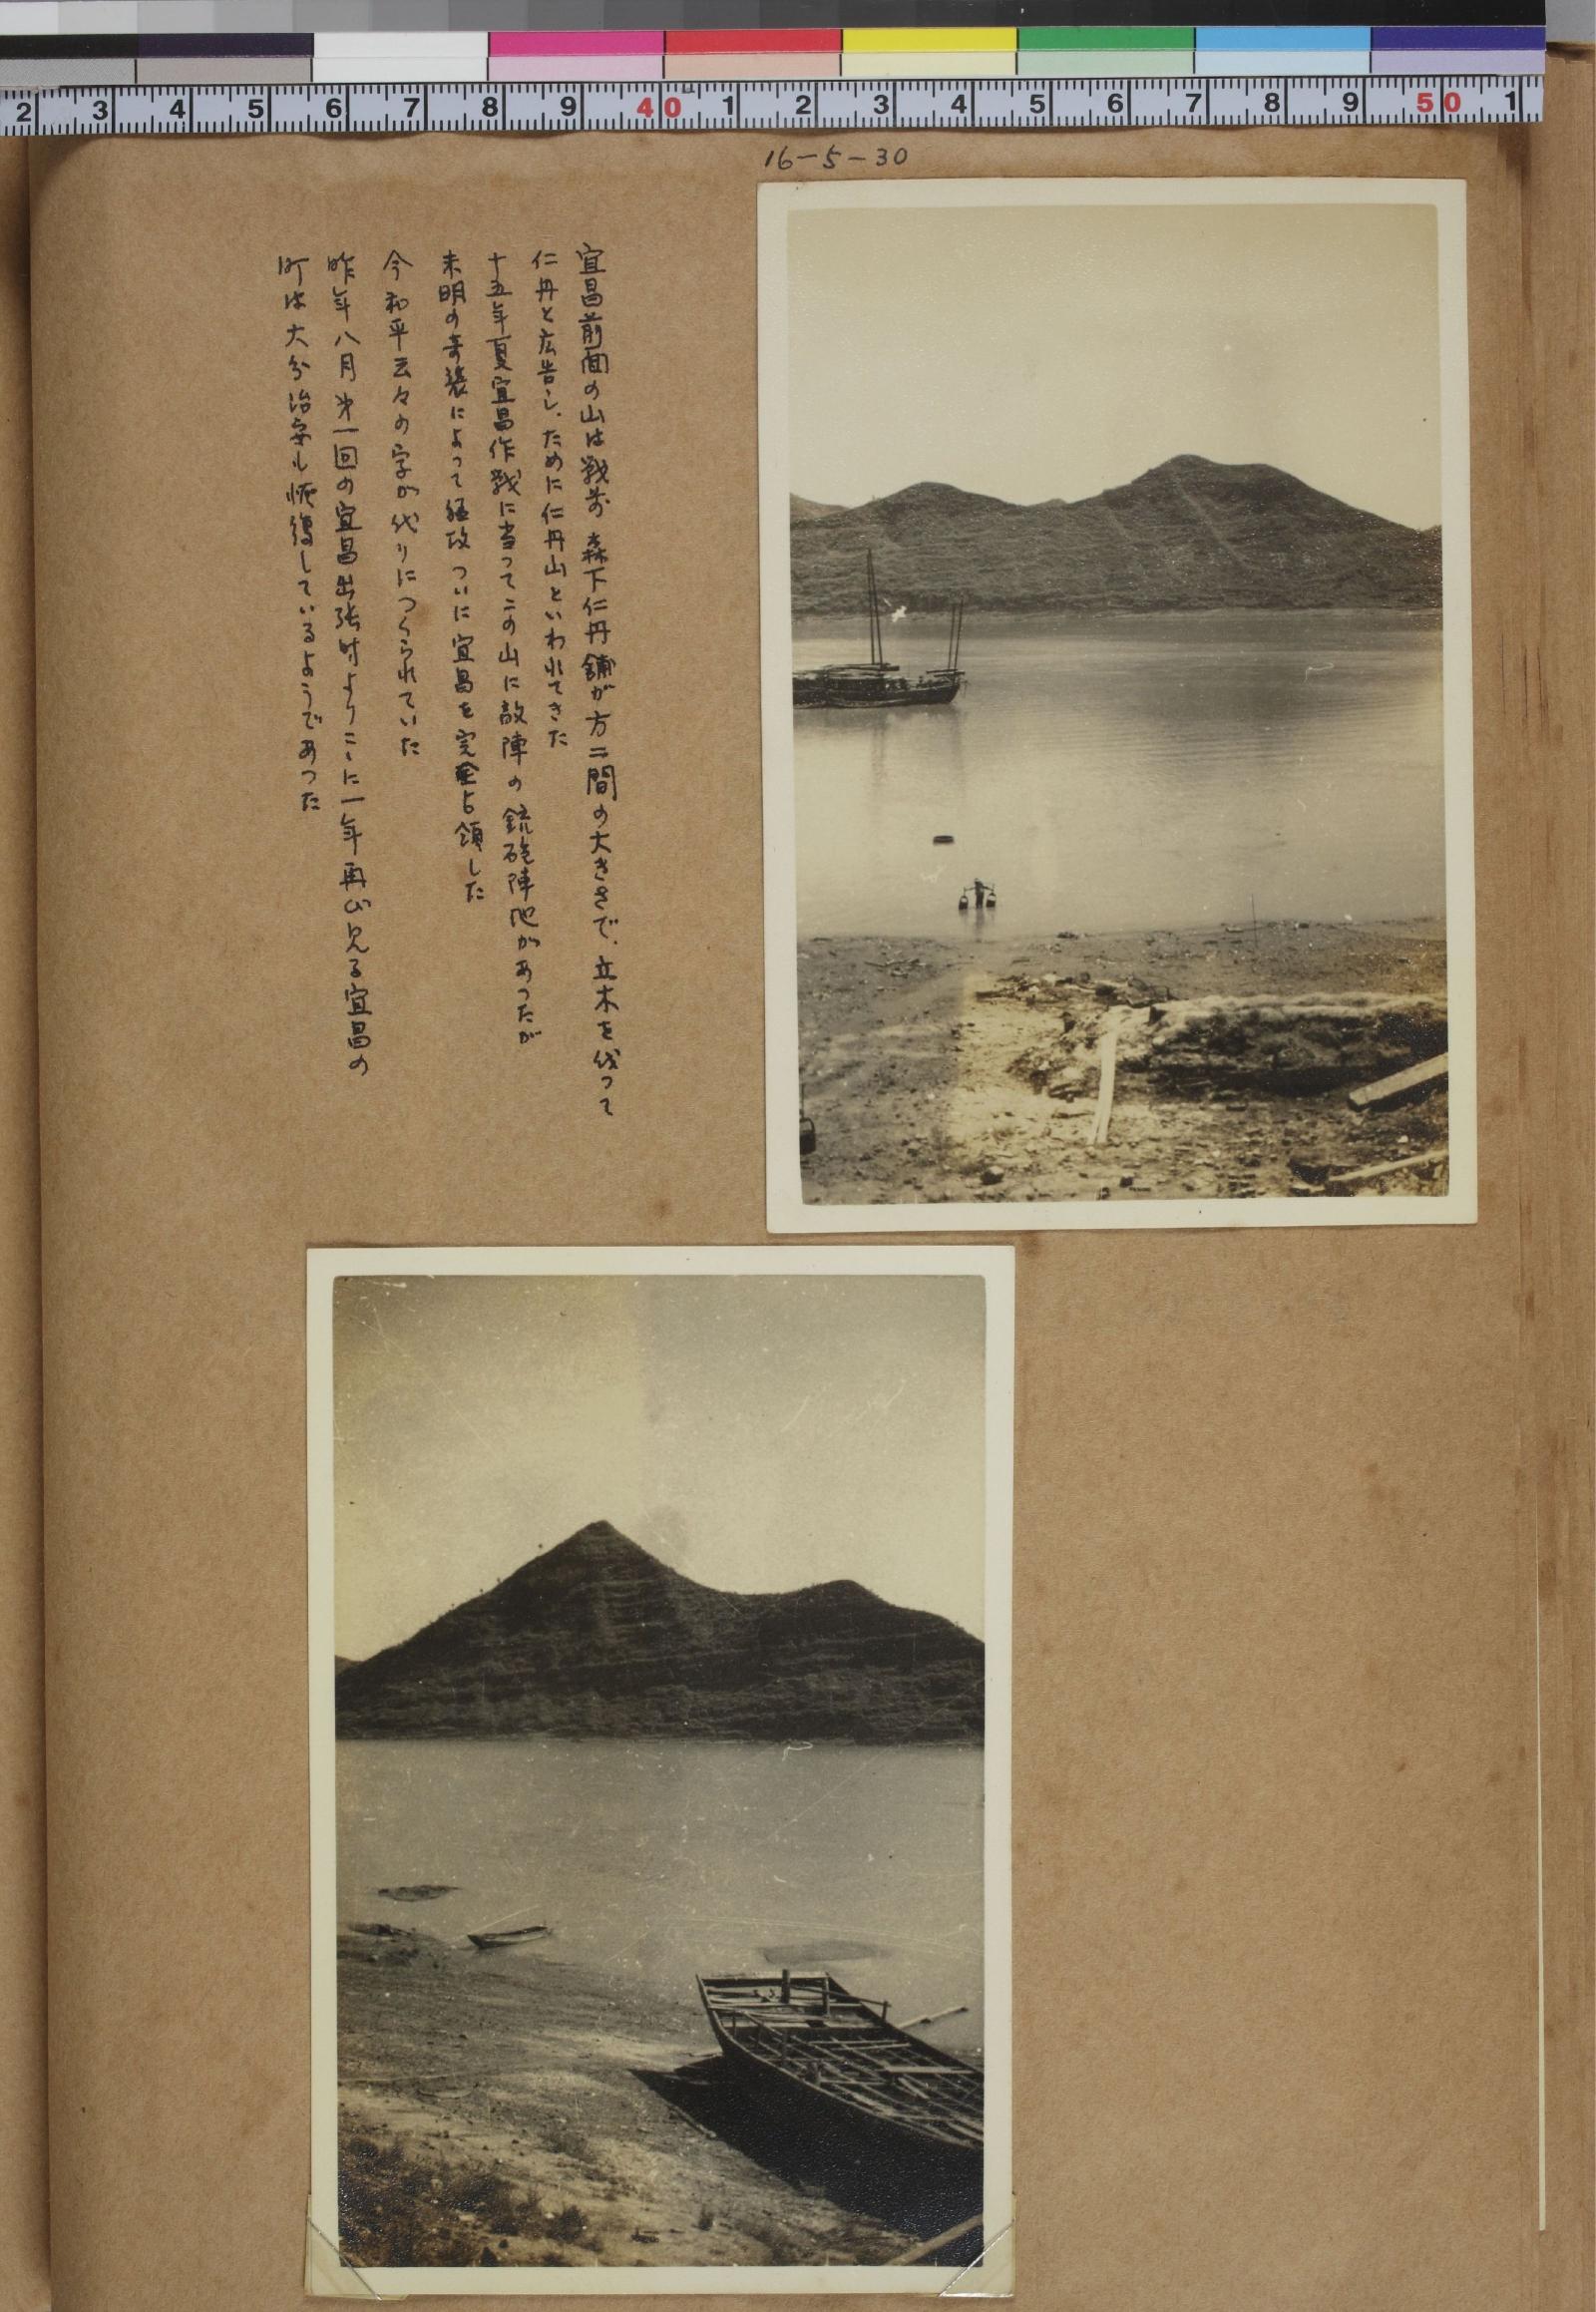 2 3 4 5 6 7 8 9 40 1 2 3 4 5 6 7 8 9 50 1
16-5-30
宜昌前面の山は戦前 森下仁丹舗が方二間の大きさで、立木を伐って
仁丹と広告し、ために仁丹山といわれてきた
十五年夏宜昌作戦に当ってこの山に敵陣の銃砲陣地があったが
未明の奇襲によって猛攻 ついに宜昌を完全占領した
今和平云々の字が代りにつくられていた
昨年八月才一回の宜昌出張時よりここに一年再び見る宜昌の
町は大分治安も恢復しているようであった